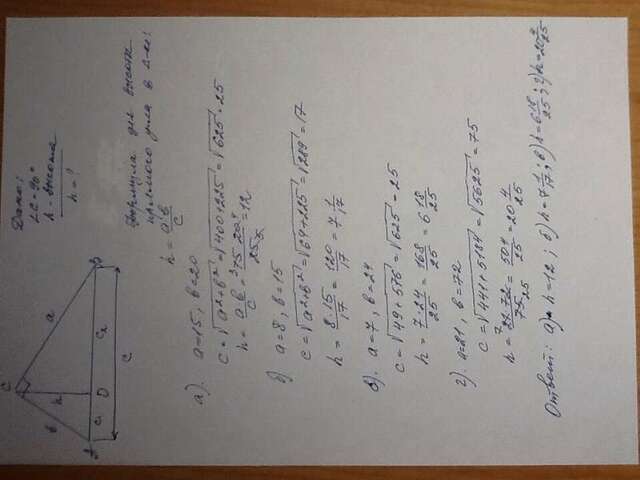 Дано:
∠C = 90°
h - высота
h = ?
C
a
b
h
A
D
B
c₁
c₂
c
Формула для высоты
прямого угла в Δ-ке:
h = a·b/c
а). a=15, b=20
c=√a²+b²=√400+225=√625=25
h = a·b/c = 15·20/25 = 12
б) a=8, b=15
c=√a²+b²=√64+225=√289=17
h = 8·15/17 = 120/17 = 7 1/17
в). a=7, b=24
c=√49+576=√625=25
h = 7·24/25 = 168/25 = 6 18/25
г). a=21, b=72
c=√441+5184=√5625=75
h = 21·72/75 = 504/25 = 20 4/25
Ответ: а) h=12; б) h=7 1/17; в) h=6 18/25; г) h=20 4/25